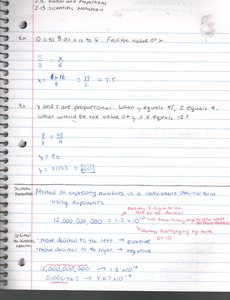 2.12 Ratios and Proportions
2.13 Scientific Notation
Ex 10 is to 8 as x is to 6. Find the value of x.
10/8 = x/6
x = 6×10/8 = 15/2 = 7.5
Ex y and z are proportional. When y equals 45, z equals 9.
What would be the value of y if z equals 12?
y/z = 45/9
y = 5z
y = 5(12) = 60
Scientific Notation
Method of expressing numbers in a convenient decimal form
using exponents
12,000,000,000 = 1.2 × 10¹⁰
always multiplying by base
of 10
Decimal to Scientific Notation
- move decimal to the left → positive
- move decimal to the right → negative
12,000,000,000 → 1.2 × 10¹⁰
0.000467 → 4.67 × 10⁻⁴